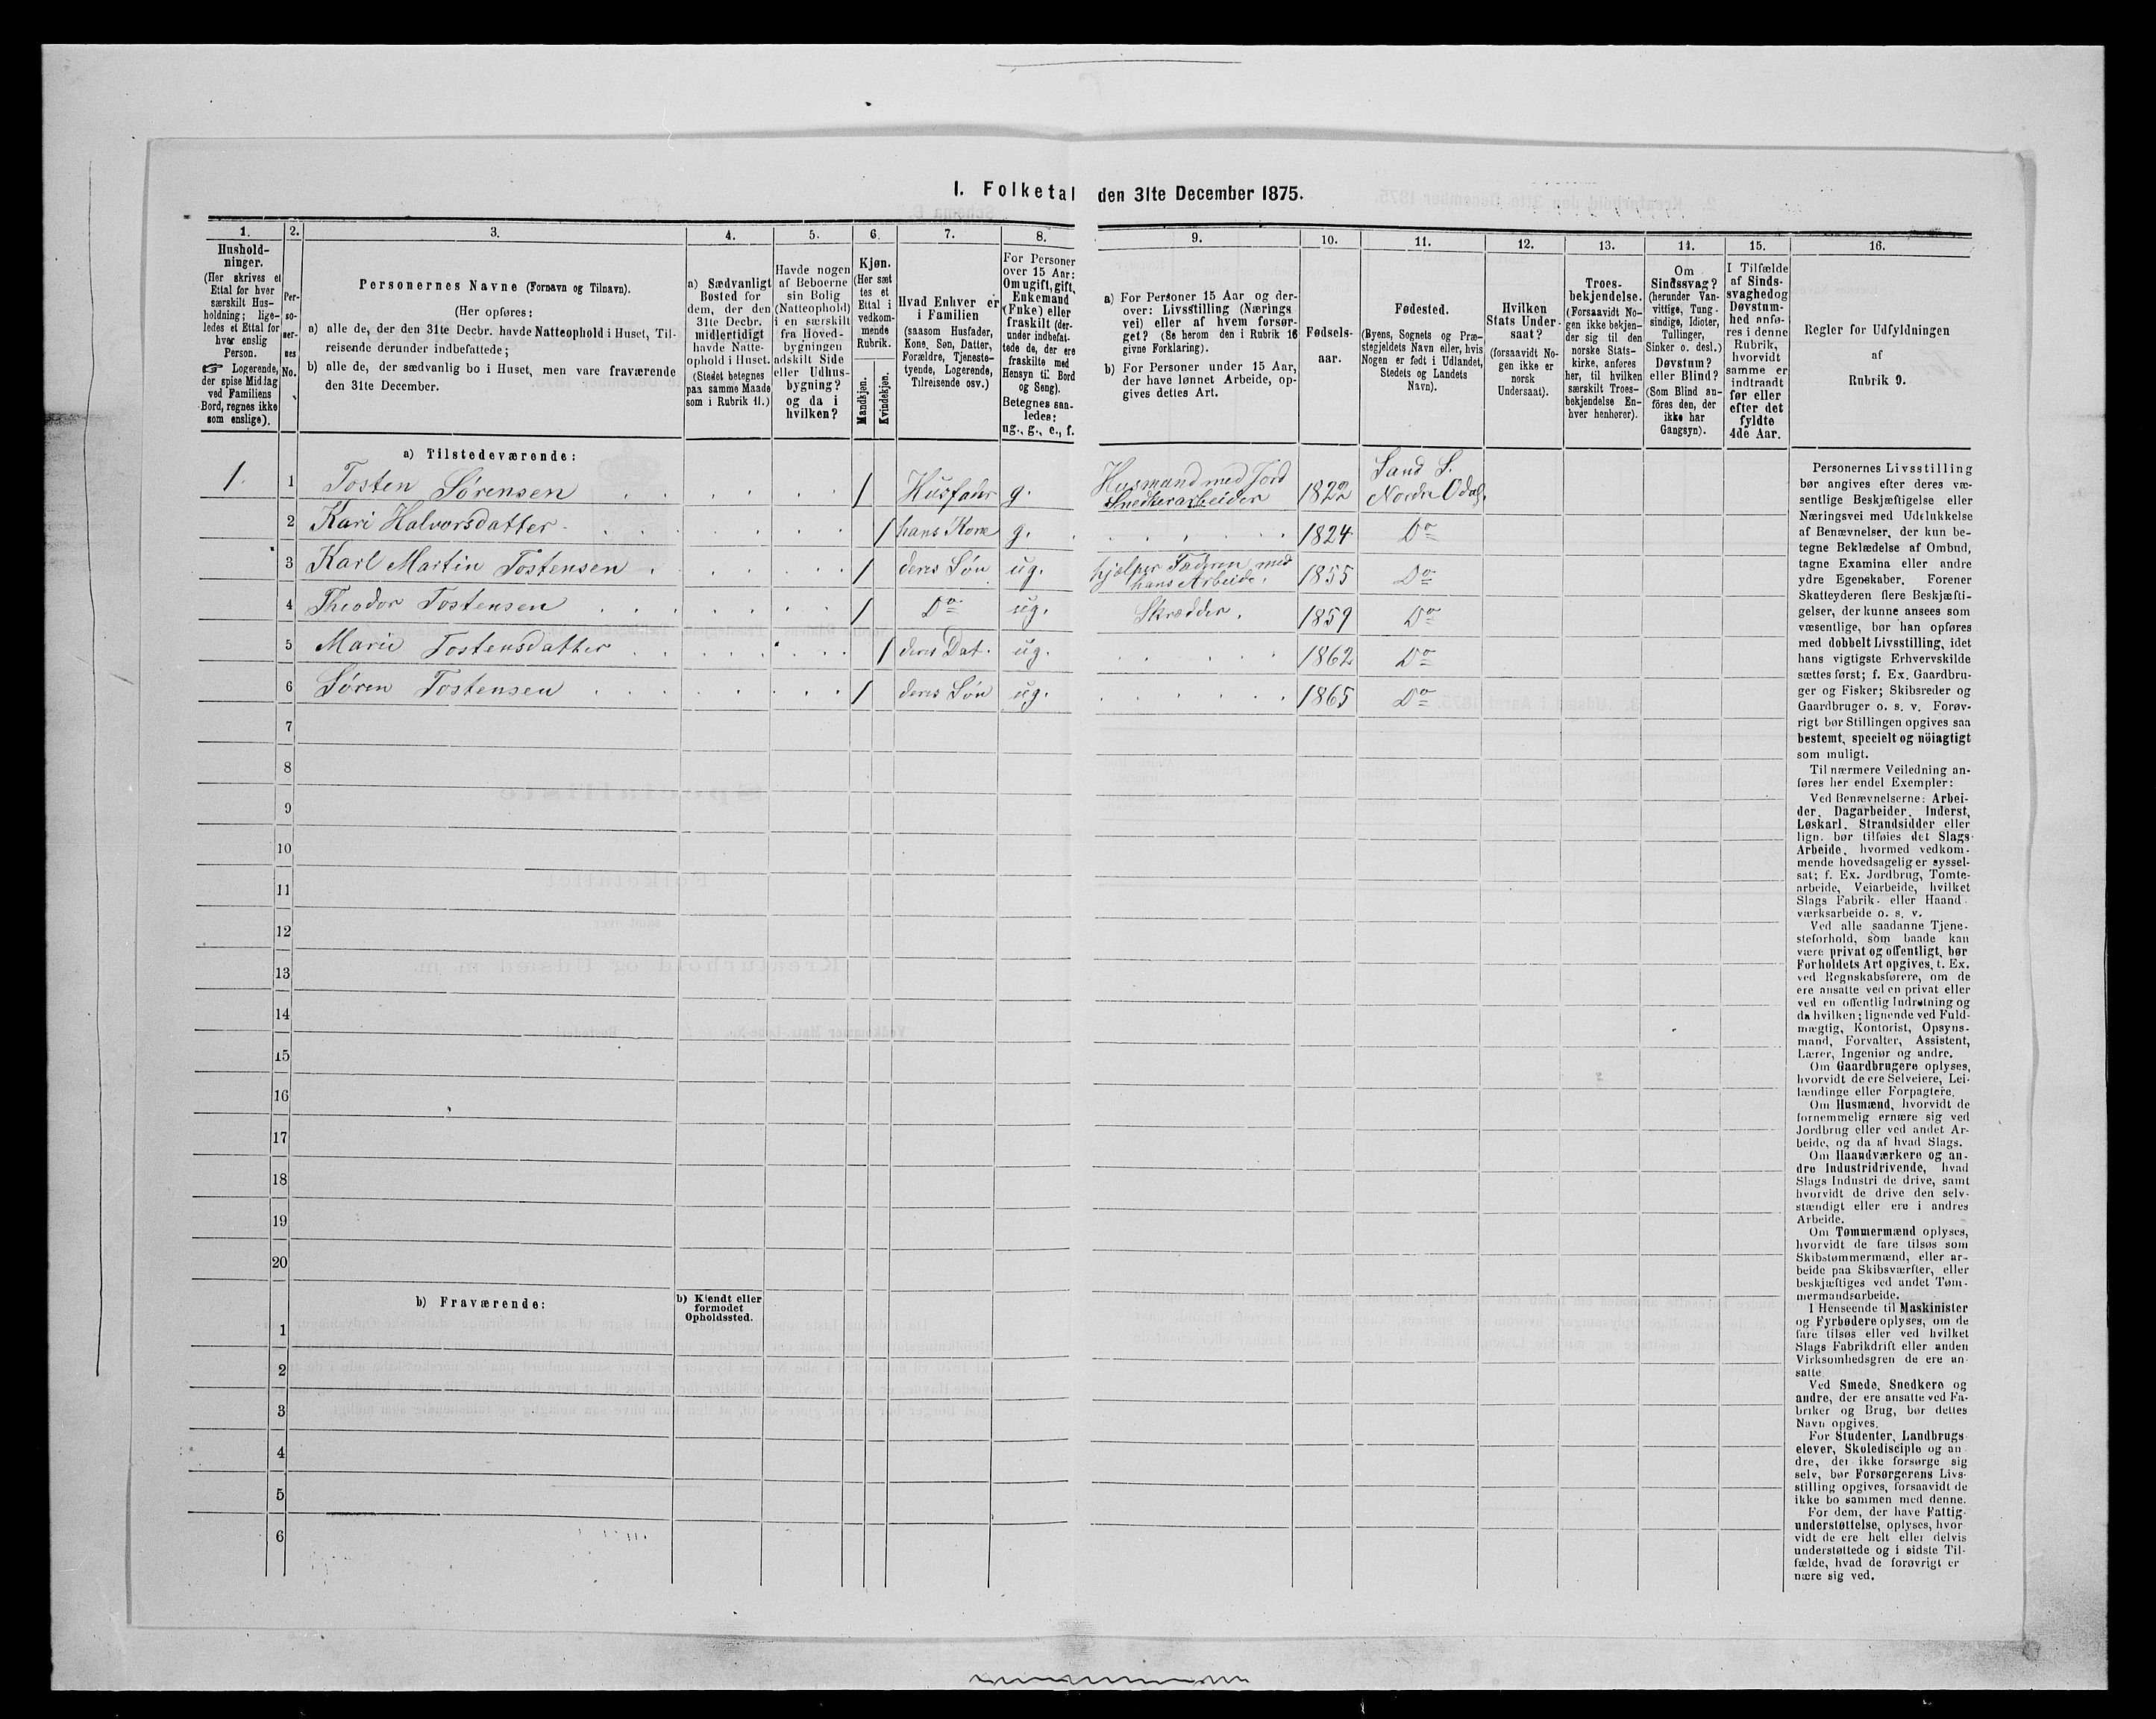 I. Folketal den 31te December 1875.
1.
Hushold-
ninger.
(Her skrives et
Ettal for hver
særskilt Hus-
holdning; lige-
ledes et Ettal for
hver enslig
Person.
☞ Logerende,
der spise Middag
ved Familiens
Bord, regnes ikke
som enslige).
2.
Per-
so-
ner-
nes
No.
3.
Personernes Navne (Fornavn og Tilnavn).
(Her opføres:
a) alle de, der den 31te Decbr. havde Natteophold i Huset, Til-
reisende derunder indbefattede;
b) alle de, der sædvanlig bo i Huset, men vare fraværende
den 31te December.
4.
a) Sædvanligt
Bosted for
dem, der den
31te Decbr.
midlertidigt
havde Natte-
ophold i Huset.
(Stedet betegnes
paa samme Maade
som i Rubrik 11.)
5.
Havde nogen
af Beboerne
sin Bolig
(Natteophold)
i en særskilt
fra Hoved-
bygningen
adskilt Side
eller Udhus-
bygning?
og da i
hvilken?
6.
Kjøn.
(Her sæt
tes et
Ettal i
vedkom-
mende
Rubrik.
Mandkjøn.
Kvindekjøn.
7.
Hvad Enhver er
i Familien
(saasom Husfader,
Kone, Søn, Datter,
Forældre, Tjeneste-
tyende, Logerende,
Tilreisende osv.)
8.
For Personer
over 15 Aar:
Om ugift, gift,
Enkemand
(Enke) eller
fraskilt (der-
under indbefat-
tede de, der ere
fraskilte med
Hensyn til Bord
og Seng).
Betegnes saa-
ledes:
ug., g., e., f.
9.
a) For Personer 15 Aar og der-
over: Livsstilling (Nærings
vei) eller af hvem forsør-
get? (Se herom den i Rubrik 16
givne Forklaring).
b) For Personer under 15 Aar,
der have lønnet Arbeide, op-
gives dettes Art.
10.
Fødsels-
aar.
11.
Fødested.
(Byens, Sognets og Præ-
stegjeldets Navn eller, hvis
Nogen er født i Udlandet,
Stedets og Landets
Navn).
12.
Hvilken
Stats Under-
saat?
(forsaavidt No-
gen ikke er
norsk
Undersaat).
13.
Troes-
bekjendelse.
(Forsaavidt No-
gen ikke bekjen-
der sig til den
norske Stats-
kirke, anføres
her, til hvilken
særskilt Troes-
bekjendelse En-
hver henhører).
14.
Om
Sindssvag?
(herunder Van-
vittige, Tung-
sindige, Idioter,
Tullinger,
Sinker o. desl.)
Døvstum?
eller Blind?
(Som Blind an-
føres den, der
ikke har
Gangsyn).
15.
I Tilfælde
af Sinds-
svaghed og
Døvstum-
hed anfø-
res i denne
Rubrik,
hvorvidt
samme er
indtraadt
før eller
efter det
fyldte
4de Aar.
16.
Regler for Udfyldningen
af
Rubrik 9.
a) Tilstedeværende:
1. 1 Tosten Sørensen 1 Husfader g. Husmand med Jord Snedkerarbeider 1822 Sand S. Nordre Odal,
2 Kari Halvorsdatter 1 hans Kone g. 1824 Do
3 Karl Martin Tostensen 1 deres Søn ug. hjælper Faderen med hans Arbeide. 1855 Do
4 Theodor Tostensen 1 Do ug. Skrædder. 1859 Do
5 Marie Tostensdatter 1 deres Dat. ug. 1862 Do
6 Søren Tostensen 1 deres Søn ug. 1865 Do
7
8
9
10
11
12
13
14
15
16
17
18
19
20
b) Fraværende:
b) Kjendt eller
formodet
Opholdssted.
1
2
3
4
5
6
Personernes Livsstilling
bør angives efter deres væ-
sentlige Beskjæftigelse eller
Næringsvei med Udelukkelse
af Benævnelser, der kun be-
tegne Beklædelse af Ombud,
tagne Examina eller andre
ydre Egenskaber. Forener
Skatteyderen flere Beskjæfti-
gelser, der kunne ansees som
væsentlige, bør han opføres
med dobbelt Livsstilling, idet
hans vigtigste Erhvervskilde
sættes først; f. Ex. Gaardbru-
ger og Fisker; Skibsreder og
Gaardbruger o. s. v. Forøv-
rigt bør Stillingen opgives saa
bestemt, specielt og nöiagtigt
som muligt.
Til nærmere Veiledning an-
føres her endel Exempler:
Ved Benævnelserne: Arbei-
der, Dagarbeider, Inderst,
Løskarl, Strandsidder eller
lign. bør tilføies det Slags
Arbeide, hvormed vedkom-
mende hovedsagelig er syssel-
sat; f. Ex. Jordbrug, Tomte-
arbeide, Veiarbeide, hvilket
Slags Fabrik- eller Haand-
værksarbeide o. s. v.
Ved alle saadanne Tjene-
steforhold, som baade kan
være privat og offentligt, bør
Forholdets Art opgives, t. Ex.
ved Regnskabsførere, om de
ere ansatte ved en privat eller
ved en offentlig Indretning og
da hvilken; lignende ved Fuld-
mægtig, Kontorist, Opsyns-
mand, Forvalter, Assistent,
Lærer, Ingeniør og andre.
Om Gaardbrugere oplyses,
hvorvidt de ere Selveiere, Lei-
lændinge eller Forpagtere.
Om Husmænd, hvorvidt de
fornemmelig ernære sig ved
Jordbrug eller ved andet Ar-
beide, og da af hvad Slags.
Om Haandværkere og an-
dre Industridrivende, hvad
Slags Industri de drive, samt
hvorvidt de drive den selv-
stændigt eller ere i andres
Arbeide.
Om Tømmermænd oplyses,
hvorvidt de fare tilsøs som
Skibstømmermænd, eller ar-
beide paa Skibsværfter, eller
beskjæftiges ved andet Tøm-
mermandsarbeide.
I Henseende til Maskinister
og Fyrbødere oplyses, om de
fare tilsøs eller ved hvilket
Slags Fabrikdrift eller anden
Virksomhedsgren de ere an-
satte.
Ved Smede, Snedkere og
andre, der ere ansatte ved Fa-
briker og Brug, bør dettes
Navn opgives.
For Studenter, Landbrugs
elever, Skoledisciple og an
dre, der ikke forsørge sig
selv, bør Forsørgerens Livs-
stilling opgives, forsaavidt de
ikke bo sammen med denne.
For dem, der have Fattig-
understøttelse, oplyses, hvor
vidt de ere helt eller delvis
understøttede og i sidste Til-
fælde, hvad de forøvrigt er
nære sig ved.